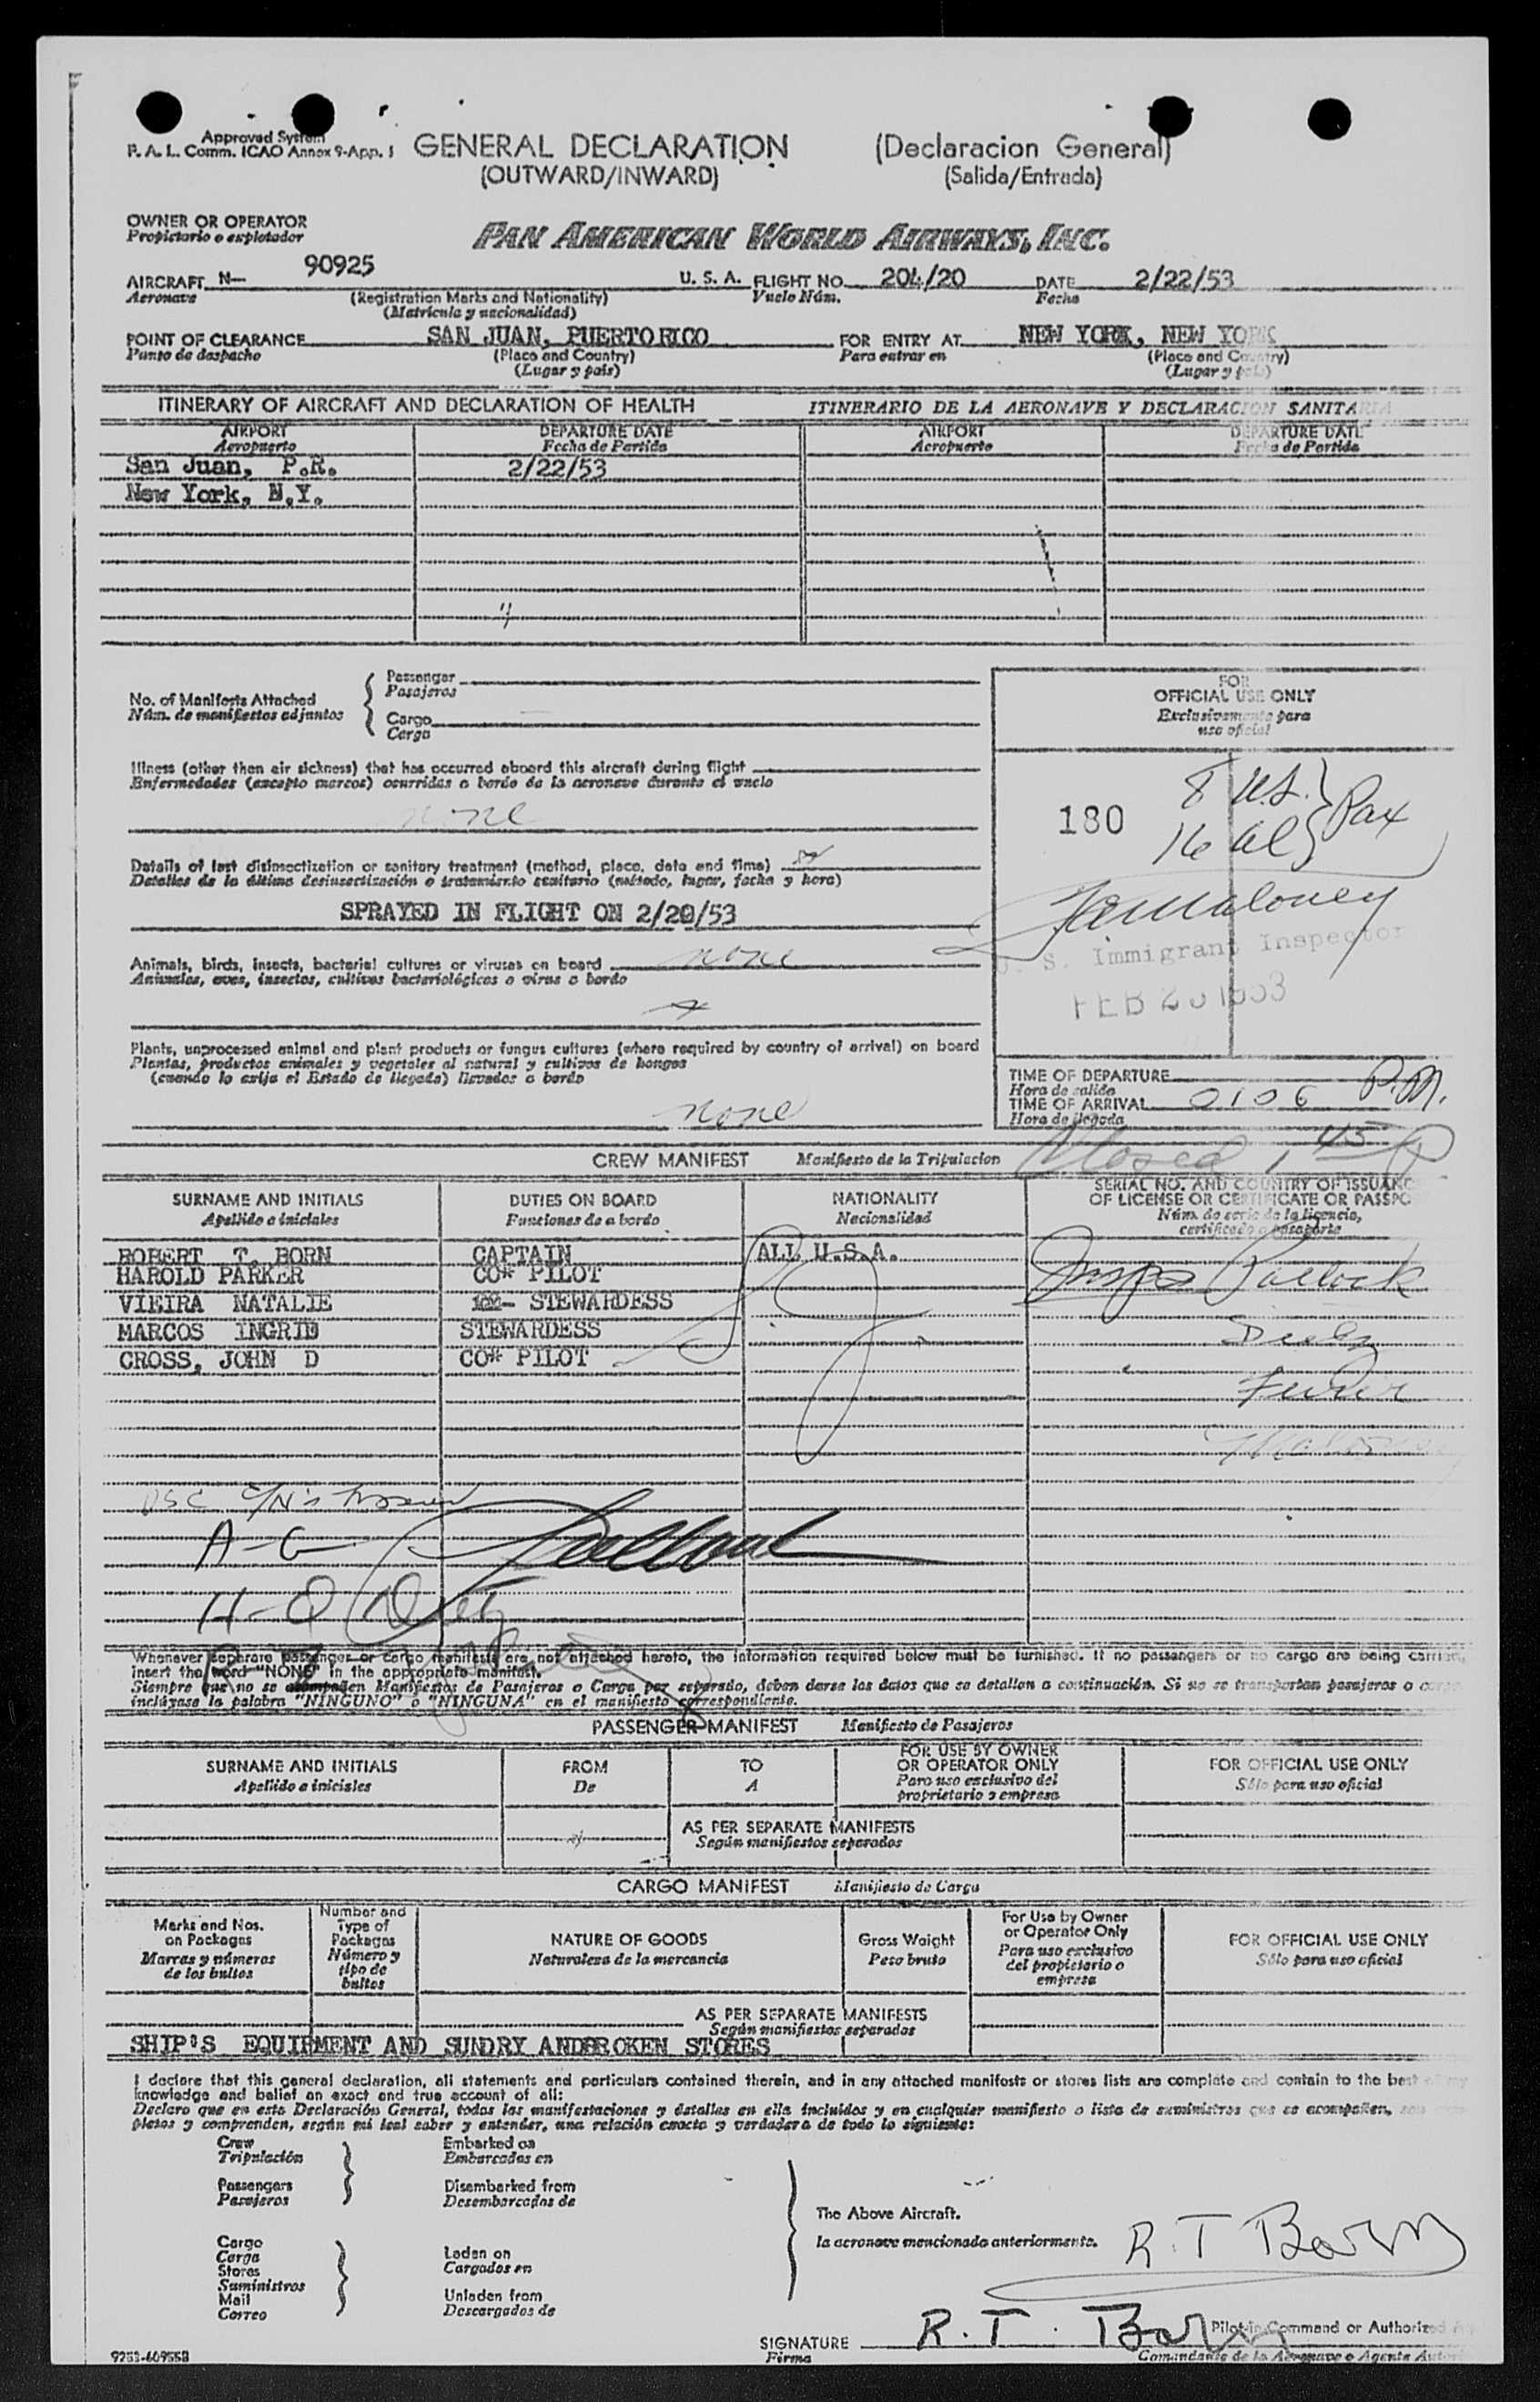 Approved System
P. A. L. Comm. ICAO Annex 9-App. 1
GENERAL DECLARATION (Declaracion General)
(OUTWARD/INWARD) (Salida/Entrada)
OWNER OR OPERATOR
Propietario o explotador
PAN AMERICAN WORLD AIRWAYS, INC.
AIRCRAFT N- 90925 U. S. A. FLIGHT NO. 204/20 DATE 2/22/53
Aeronave (Registration Marks and Nationality) Vuelo Núm. Fecha
(Matrícula y nacionalidad)
POINT OF CLEARANCE SAN JUAN, PUERTO RICO FOR ENTRY AT NEW YORK, NEW YORK
Punto de despacho (Place and Country) Para entrar en (Place and Country)
(Lugar y país) (Lugar y país)
ITINERARY OF AIRCRAFT AND DECLARATION OF HEALTH ITINERARIO DE LA AERONAVE Y DECLARACION SANITARIA
AIRPORT DEPARTURE DATE AIRPORT DEPARTURE DATE
Aeropuerto Fecha de Partida Aeropuerto Fecha de Partida
San Juan, P.R. 2/22/53
New York, N.Y.
No. of Manifests Attached
Núm. de manifiestos adjuntos
Passenger
Pasajeros
Cargo
Carga
FOR
OFFICIAL USE ONLY
Exclusivamente para
uso oficial
Illness (other than air sickness) that has occurred aboard this aircraft during flight
Enfermedades (excepto mareos) ocurridas a bordo de la aeronave durante el vuelo
none
180
8 U.S.
16 al
Pax
Details of last disinsectization or sanitary treatment (method, place, date and time)
Detalles de la última desinsectización o tratamiento sanitario (método, lugar, fecha y hora)
SPRAYED IN FLIGHT ON 2/20/53
Maloney
U. S. Immigrant Inspector
FEB 1953
Animals, birds, insects, bacterial cultures or viruses on board none
Animales, aves, insectos, cultivos bacteriológicos o virus a bordo
Plants, unprocessed animal and plant products or fungus cultures (where required by country of arrival) on board
Plantas, productos animales y vegetales al natural y cultivos de hongos
(cuando lo exija el Estado de llegada) llevados a bordo
none
TIME OF DEPARTURE
Hora de salida
TIME OF ARRIVAL 0106 P.M.
Hora de llegada
CREW MANIFEST Manifiesto de la Tripulacion
SURNAME AND INITIALS DUTIES ON BOARD NATIONALITY SERIAL NO. AND COUNTRY OF ISSUANCE
OF LICENSE OR CERTIFICATE OR PASSPO
Apellido e iniciales Funciones de a bordo Nacionalidad Núm. de serie de la licencia,
certificado o pasaporte
ROBERT T. BORN CAPTAIN ALL U.S.A.
HAROLD PARKER CO* PILOT
VIEIRA NATALIE STEWARDESS
MARCOS INGRID STEWARDESS
CROSS, JOHN D CO* PILOT
Insps Pollock
A-G
H-Q
Whenever separate passenger or cargo manifests are not attached hereto, the information required below must be furnished. If no passengers or no cargo are being carried,
insert the word "NONE" in the appropriate manifest.
Siempre que no se acompañen Manifiestos de Pasajeros o Carga por separado, deben darse los datos que se detallan a continuación. Si no se transportan pasajeros o carga
inclúyase la palabra "NINGUNO" o "NINGUNA" en el manifiesto correspondiente.
PASSENGER MANIFEST Manifiesto de Pasajeros
SURNAME AND INITIALS FROM TO FOR USE BY OWNER OR OPERATOR ONLY FOR OFFICIAL USE ONLY
Apellido e iniciales De A Para uso exclusivo del propietario o empresa Sólo para uso oficial
AS PER SEPARATE MANIFESTS
Según manifiestos separados
CARGO MANIFEST Manifiesto de Carga
Marks and Nos. on Packages
Marcas y números de los bultos
Number and Type of Packages
Número y tipo de bultos
NATURE OF GOODS
Naturaleza de la mercancia
Gross Weight
Peso bruto
For Use by Owner or Operator Only
Para uso exclusivo del propietario o empresa
FOR OFFICIAL USE ONLY
Sólo para uso oficial
AS PER SEPARATE MANIFESTS
Según manifiestos separados
SHIP'S EQUIPMENT AND SUNDRY ANDBROKEN STORES
I declare that this general declaration, all statements and particulars contained therein, and in any attached manifests or stores lists are complete and contain to the best of my
knowledge and belief an exact and true account of all:
Declaro que en esta Declaración General, todas las manifestaciones y detalles en ella incluidos y en cualquier manifiesto o lista de suministros que se acompañen, son
pletos y comprenden, según mi leal saber y entender, una relación exacta y verdadera de todo lo siguiente:
Crew Embarked on
Tripulación Embarcados en
Passengers Disembarked from
Pasajeros Desembarcados de
The Above Aircraft.
la aeronave mencionada anteriormente.
Cargo
Carga Laden on
Stores Cargados en
Suministros
Mail Unladen from
Correo Descargados de
R T Born
SIGNATURE R. T. Born Pilot in Command or Authorized
Firma Comandante de la Aeronave o Agente Autor
9253-60955B